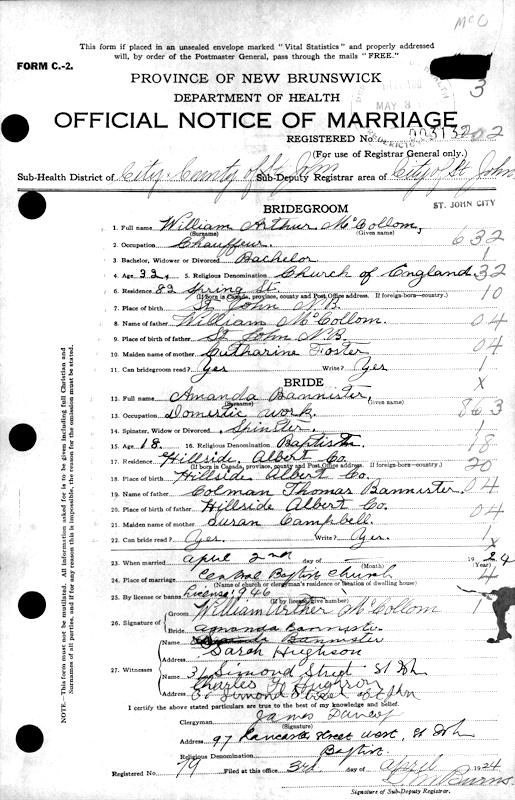 McO
This form if placed in an unsealed envelope marked "Vital Statistics" and properly addressed
will, by order of the Postmaster General, pass through the mails "FREE."
FORM C.-2.
3
PROVINCE OF NEW BRUNSWICK
DEPARTMENT OF HEALTH
MAY 3
OFFICIAL NOTICE OF MARRIAGE
REGISTERED No. 003132 202
(For use of Registrar General only.)
Sub-Health District of City & County of St John Sub-Deputy Registrar area of City of St John
ST. JOHN CITY
BRIDEGROOM
1. Full name William Arthur McCollom,
(Surname) (Given name)
632
2. Occupation Chauffeur.
3. Bachelor, Widower or Divorced Bachelor 1
4. Age 32, 5. Religious Denomination Church of England 32
6. Residence 82 Spring St. 10
(If born in Canada, province, county and Post Office address. If foreign-born—country.)
7. Place of birth St John N.B.
8. Name of father William McCollom. 04
9. Place of birth of father St John N.B.
10. Maiden name of mother Catharine Foster 04
11. Can bridegroom read? Yes Write? Yes 1
x
BRIDE
12. Full name Amanda Bannister,
(Surname) (Given name)
863
13. Occupation Domestic work.
14. Spinster, Widow or Divorced Spinster. 1
15. Age 18. 16. Religious Denomination Baptist 18
17. Residence Hillside, Albert Co. 20
(If born in Canada, province, county and Post Office address. If foreign-born—country.)
18. Place of birth Hillside Albert Co.
19. Name of father Colman Thomas Bannister 04
20. Place of birth of father Hillside Albert Co.
21. Maiden name of mother Susan Campbell. 04
22. Can bride read? Yes. Write? Yes. 1
x
23. When married April 2nd day of 1924
(Month) (Year)
24. Place of marriage Central Baptist Church 4
(Name of church or clergyman's residence or location of dwelling house)
25. By license or banns License 946
(If by license give number)
26. Signature of Groom William Arther McCollom 1
Bride Amanda Bannister
27. Witnesses Name Bannister
Sarah Hughson
Address 31 Simond Street St John
Name Charles H Hughson
Address Simond Street St John
I certify the above stated particulars are true to the best of my knowledge and belief.
Clergyman, James
(Signature)
Address 97 Lancaster Street West, St John
Religious Denomination Baptist
Registered No. 79 Filed at this office 3rd April 1924
Burns
Signature of Sub-Deputy Registrar.
NOTE.—This form must not be mutilated. All information asked for is to be given including full Christian and
Surnames of all parties, and if for any reason this is impossible, the reason for the omission must be stated.